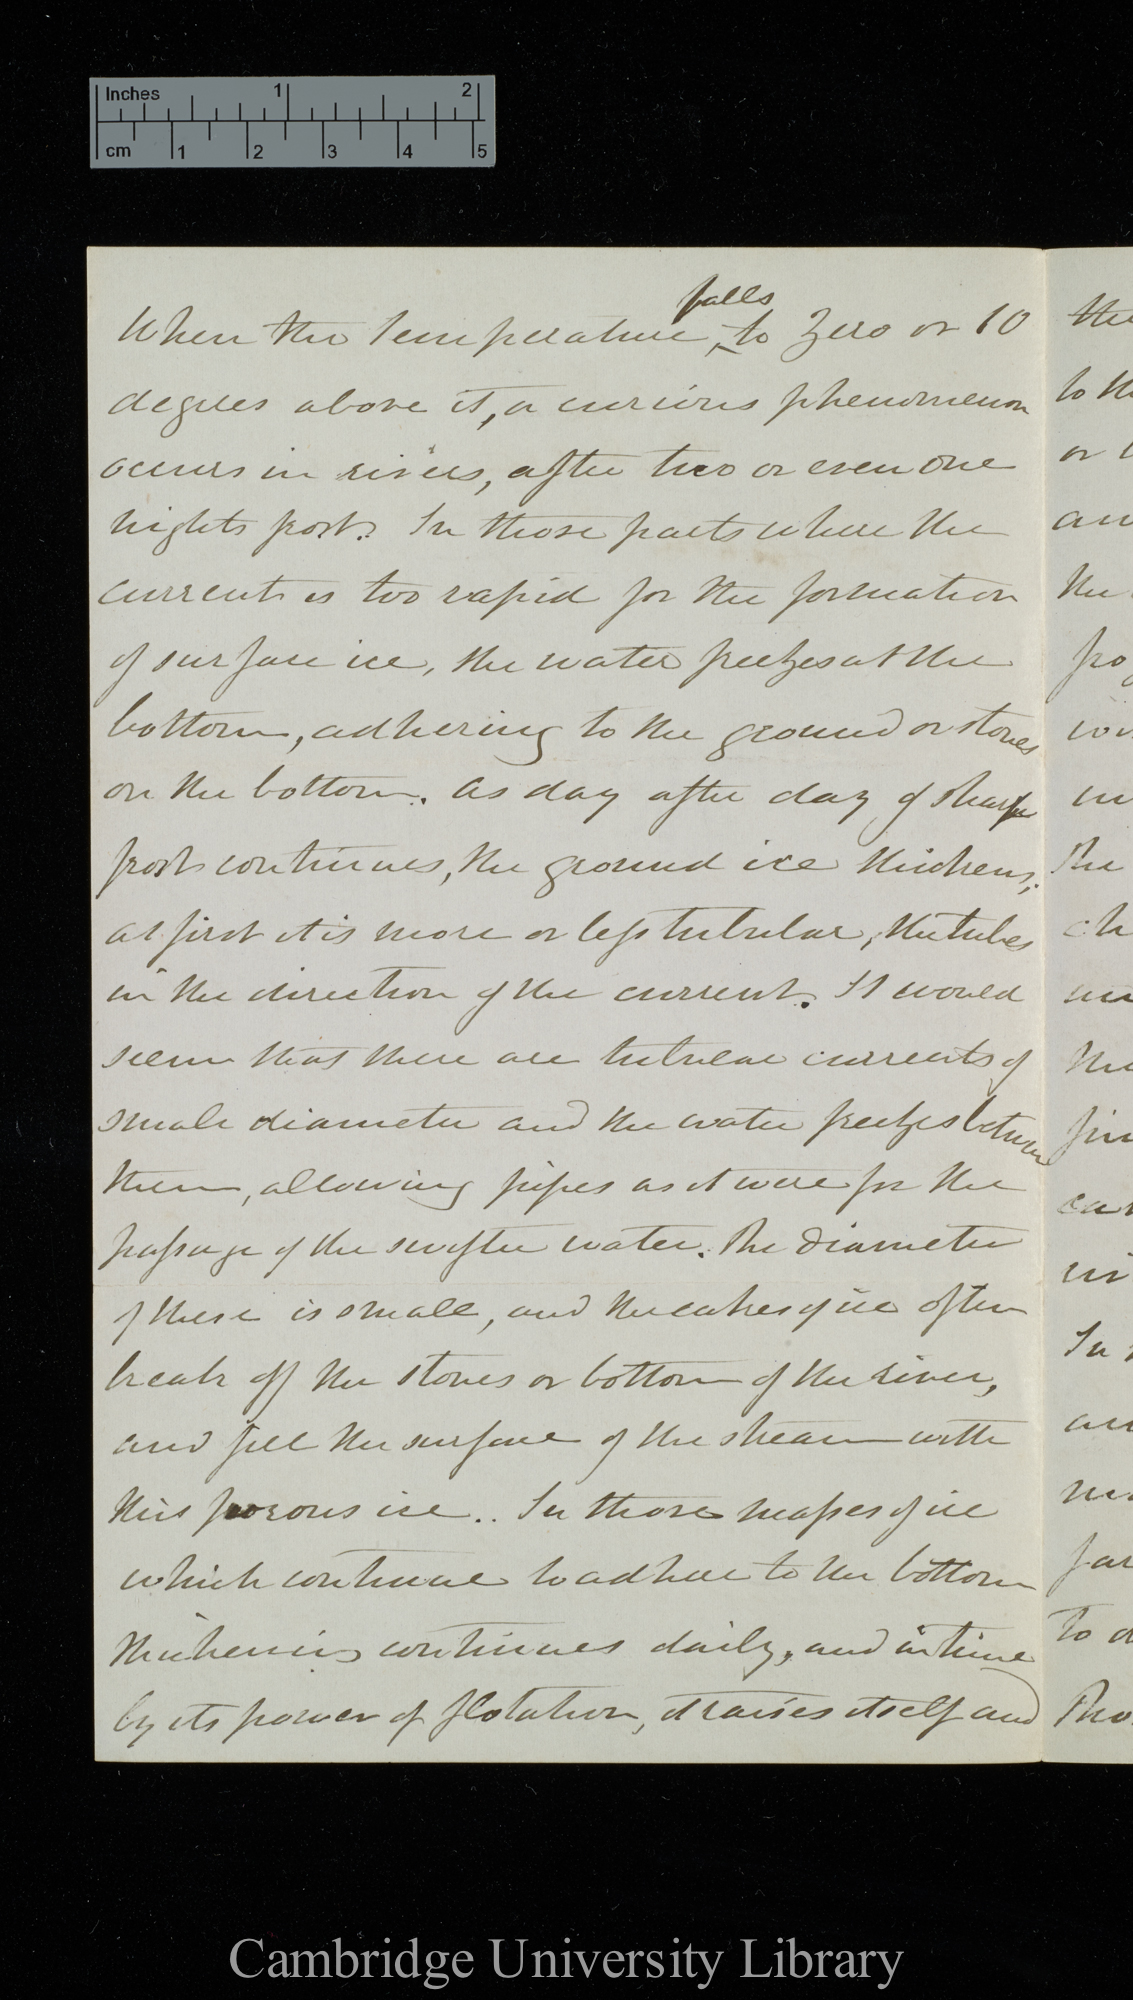 Inches 1 2
cm 1 2 3 4 5
falls
When the temperature, to Zero or 10
degrees above it, a curious phenomenon
occurs in rivers, after two or even one
nights frost. In those parts where the
current is too rapid for the formation
of surface ice, the water freezes at the
bottom, adhering to the ground or stones
on the bottom. As day after day of sharp
frost continues, the ground ice thickens,
at first it is more or less tubular, the tubes
in the direction of the current. It would
seem that there are tubular currents of
small diameter and the water freezes between
them, allowing pipes as it were for the
passage of the swifter water. The diameter
of these is small, and the cakes of ice often
break off the stones or bottom of the river,
and fill the surface of the stream with
this porous ice.. In those masses of ice
which continue to adhere to the bottom
thickening continues daily, and in time
by its power of flotation, it raises itself and
the
to th
or
an
the
fro
in
The
ch
the
fin
car
in
In
an
far
to d
Cambridge University Library